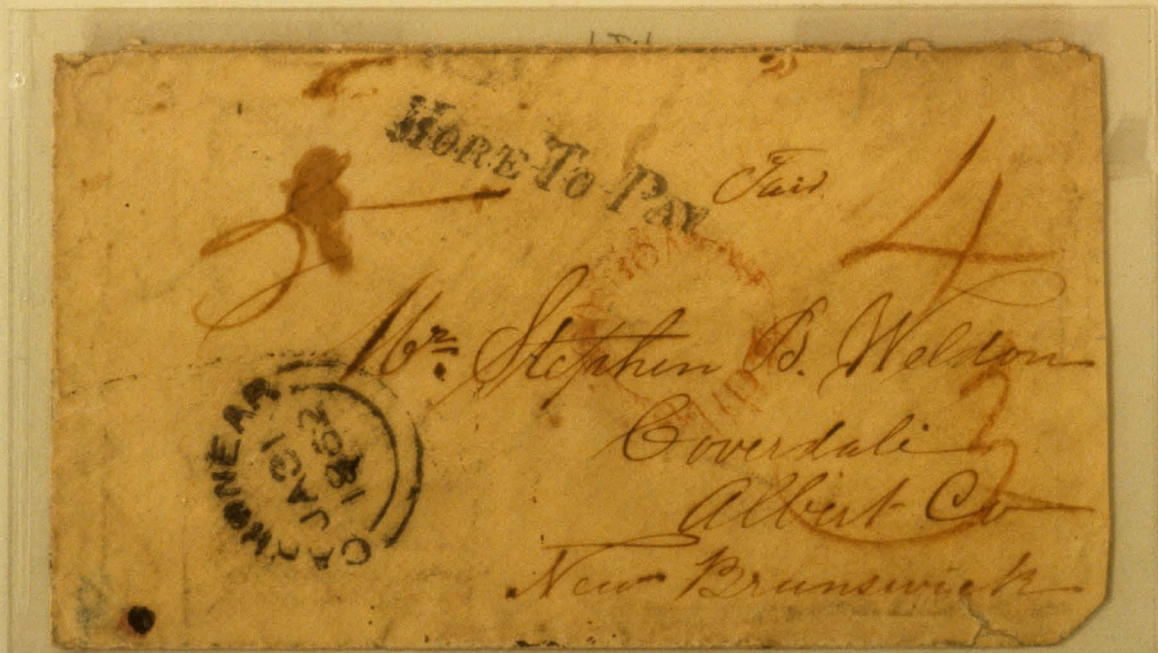 MORE TO PAY
Paid
4
5
Mr. Stephen B. Weldon
Coverdale
Albert Co
New Brunswick
3
CARBONEAR
JA 31
1862